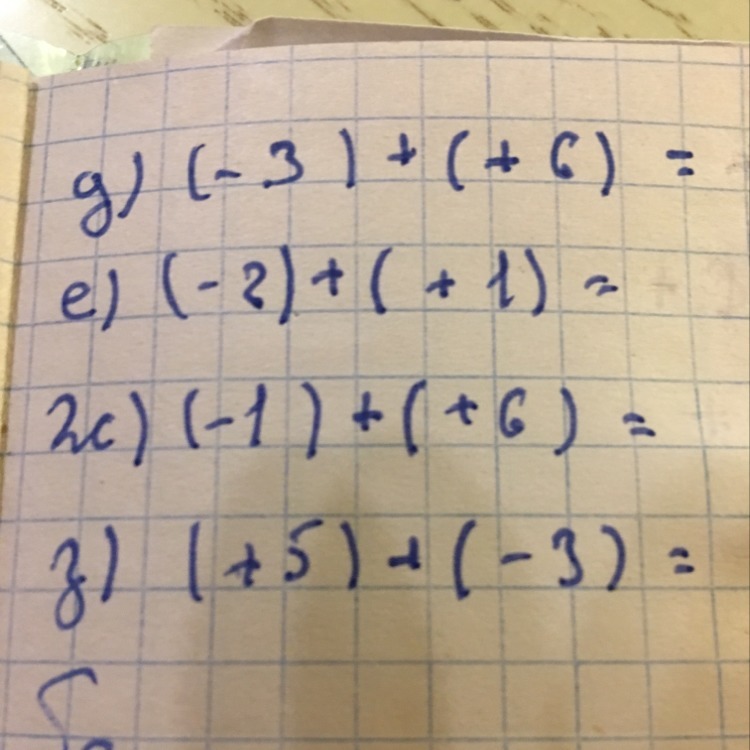 д) (-3) + (+6) =
е) (-2) + (+1) =
ж) (-1) + (+6) =
з) (+5) + (-3) =